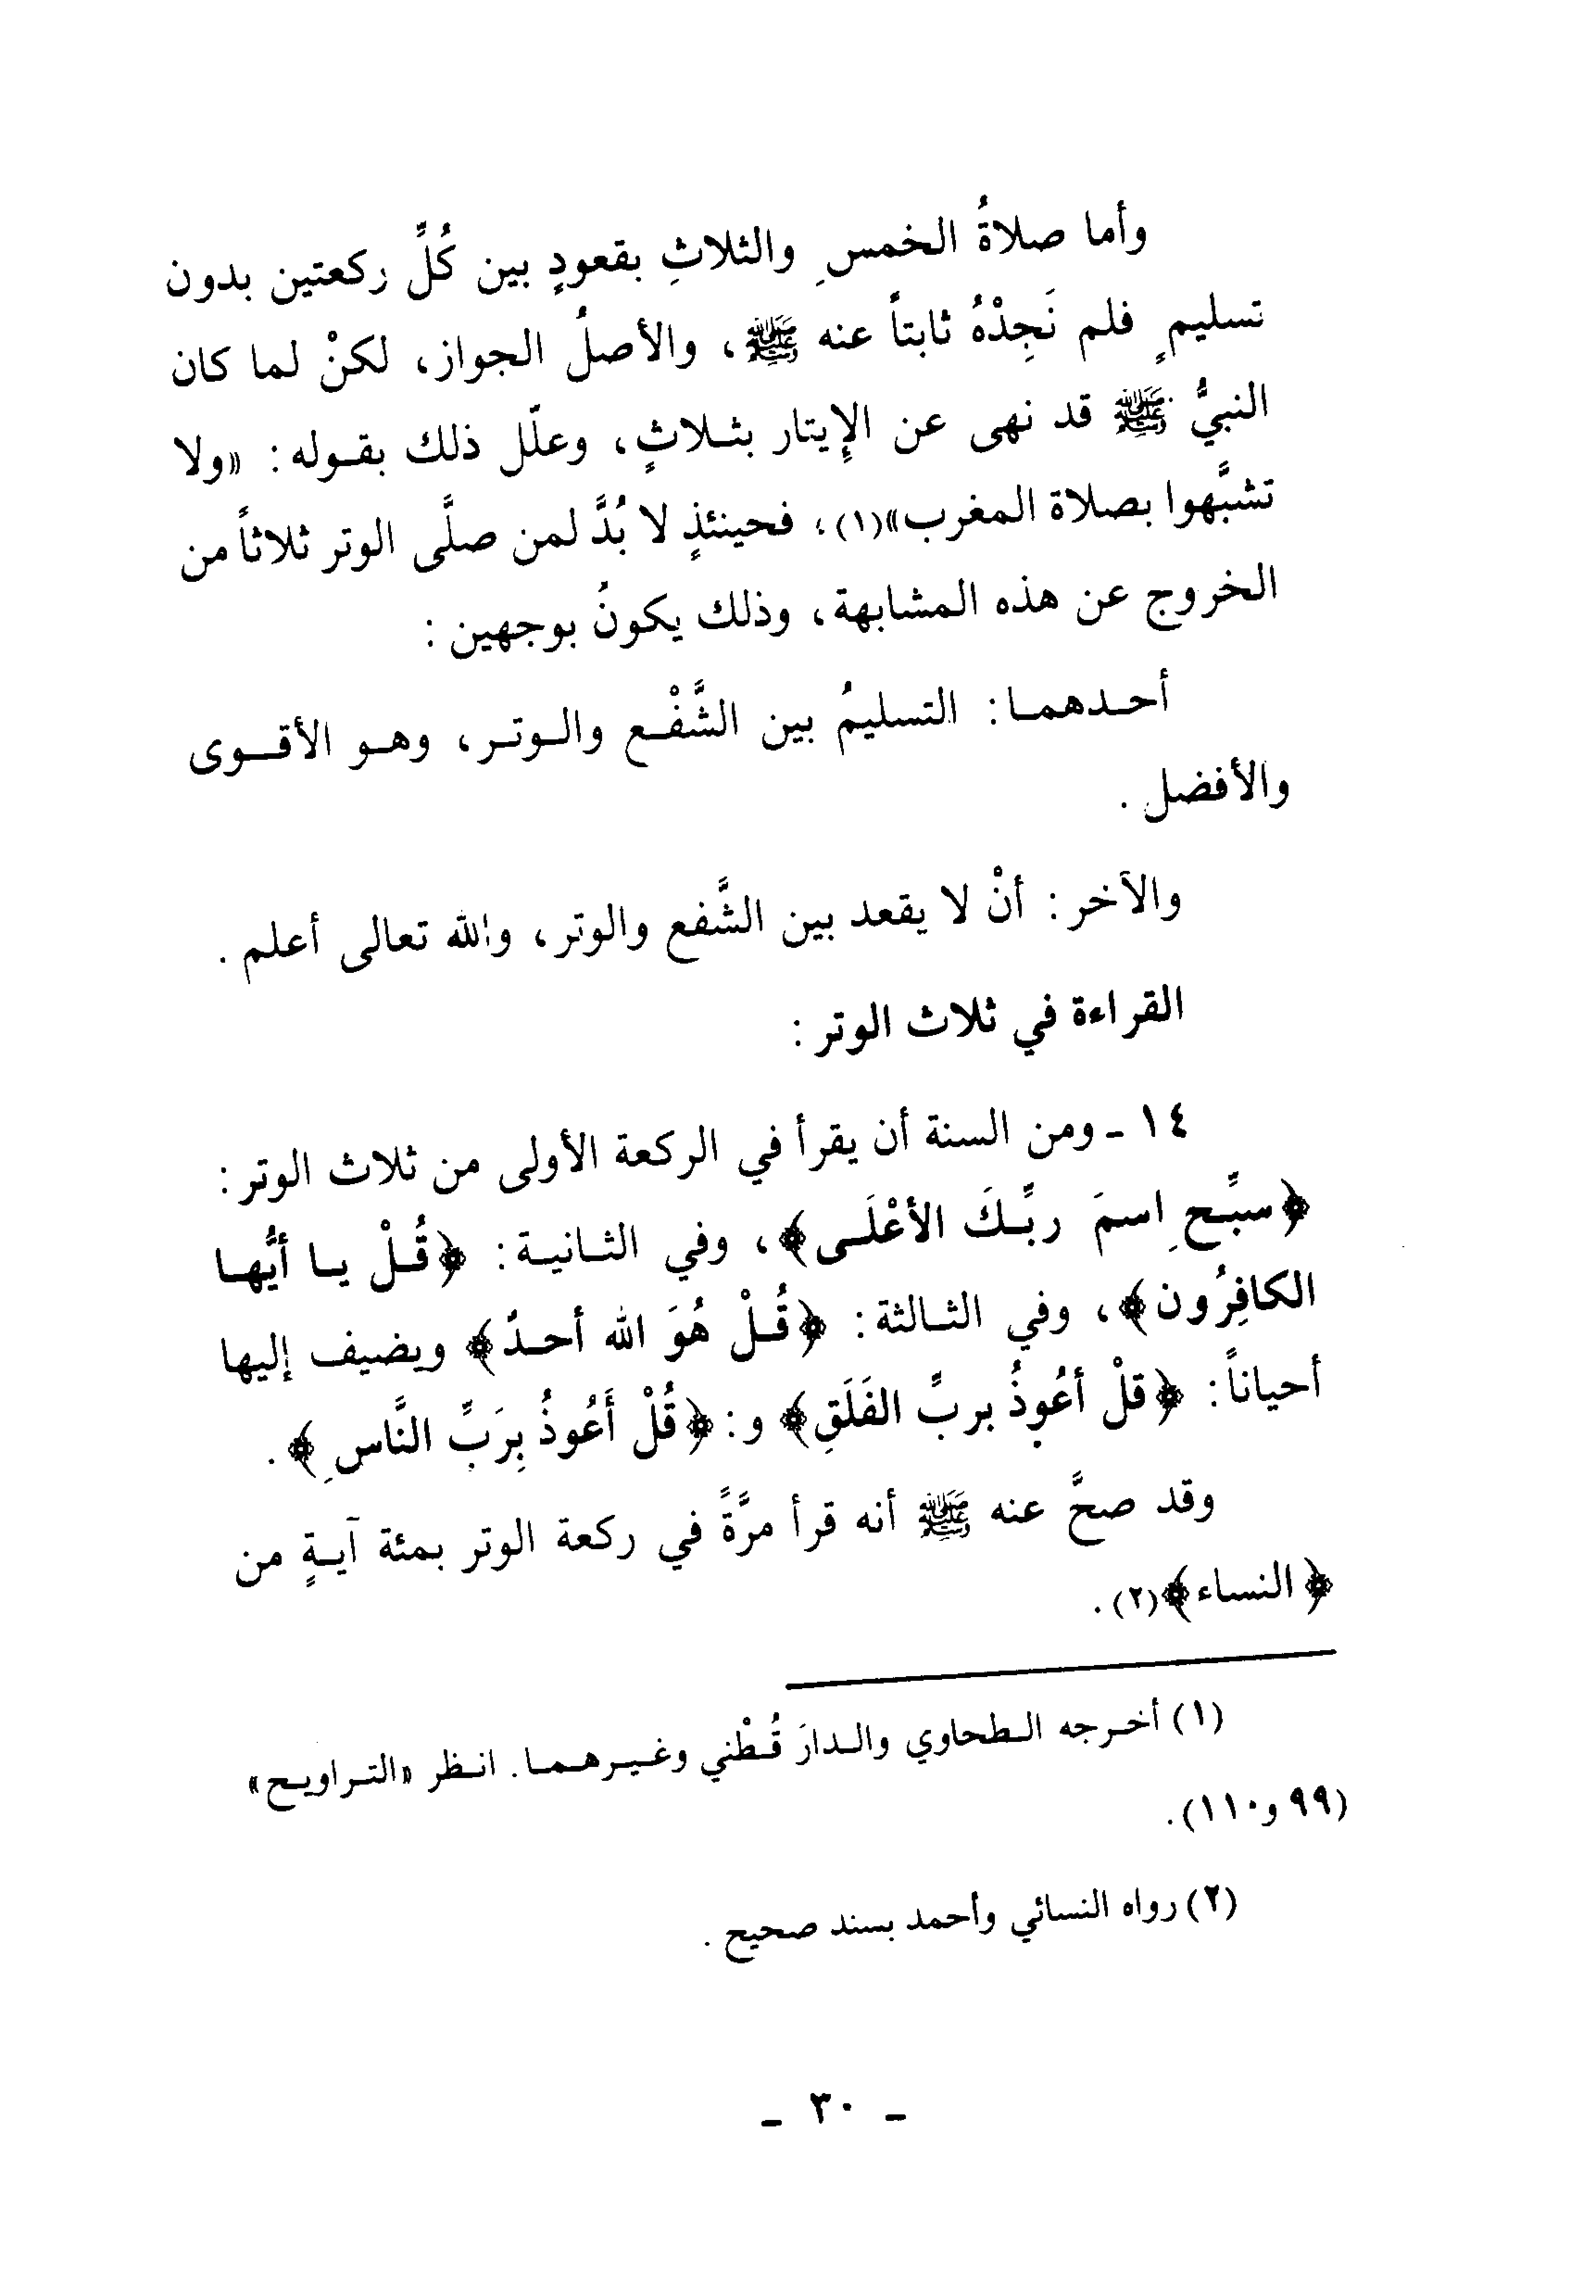 وأما صلاةُ الخمسِ والثلاثِ بقعودٍ بين كُلِّ ركعتين بدون
تسليمٍ فلم نَجِدْهُ ثابتاً عنه ﷺ، والأصلُ الجواز، لكنْ لما كان
النبيُّ ﷺ قد نهى عن الإِيتار بثـلاثٍ، وعلّل ذلك بقـوله: «ولا
تشبَّهوا بصلاة المغرب»(١)؛ فحينئذٍ لا بُدَّ لمن صلَّى الوتر ثلاثاً من
الخروج عن هذه المشابهة، وذلك يكونُ بوجهين:
أحـدهمـا: التسليمُ بين الشَّفْـع والـوتـر، وهـو الأقـوى
والأفضل.
والآخر: أنْ لا يقعد بين الشَّفع والوتر، والله تعالى أعلم.
القراءة في ثلاث الوتر:
١٤ ـ ومن السنة أن يقرأ في الركعة الأولى من ثلاث الوتر:
﴿سبِّـحِ اسمَ ربِّـكَ الأعْلَـى﴾، وفي الثـانيـة: ﴿قُـلْ يـا أيُّهـا
الكافِرُون﴾، وفي الثـالثة: ﴿قُـلْ هُوَ الله أحـدٌ﴾ ويضيف إليها
أحياناً: ﴿قلْ أعُوذُ بربِّ الفَلَقِ﴾ و: ﴿قُلْ أَعُوذُ بِرَبِّ النَّاسِ﴾.
وقد صحَّ عنه ﷺ أنه قرأ مرَّةً في ركعة الوتر بمئة آيـةٍ من
﴿النساء﴾(٢).
(١) أخـرجه الـطحاوي والـدارَ قُـطْني وغـيـرهـمـا. انـظر «التـراويـح»
(٩٩ و١١٠).
(٢) رواه النسائي وأحمد بسند صحيح.
ـ ٣٠ ـ